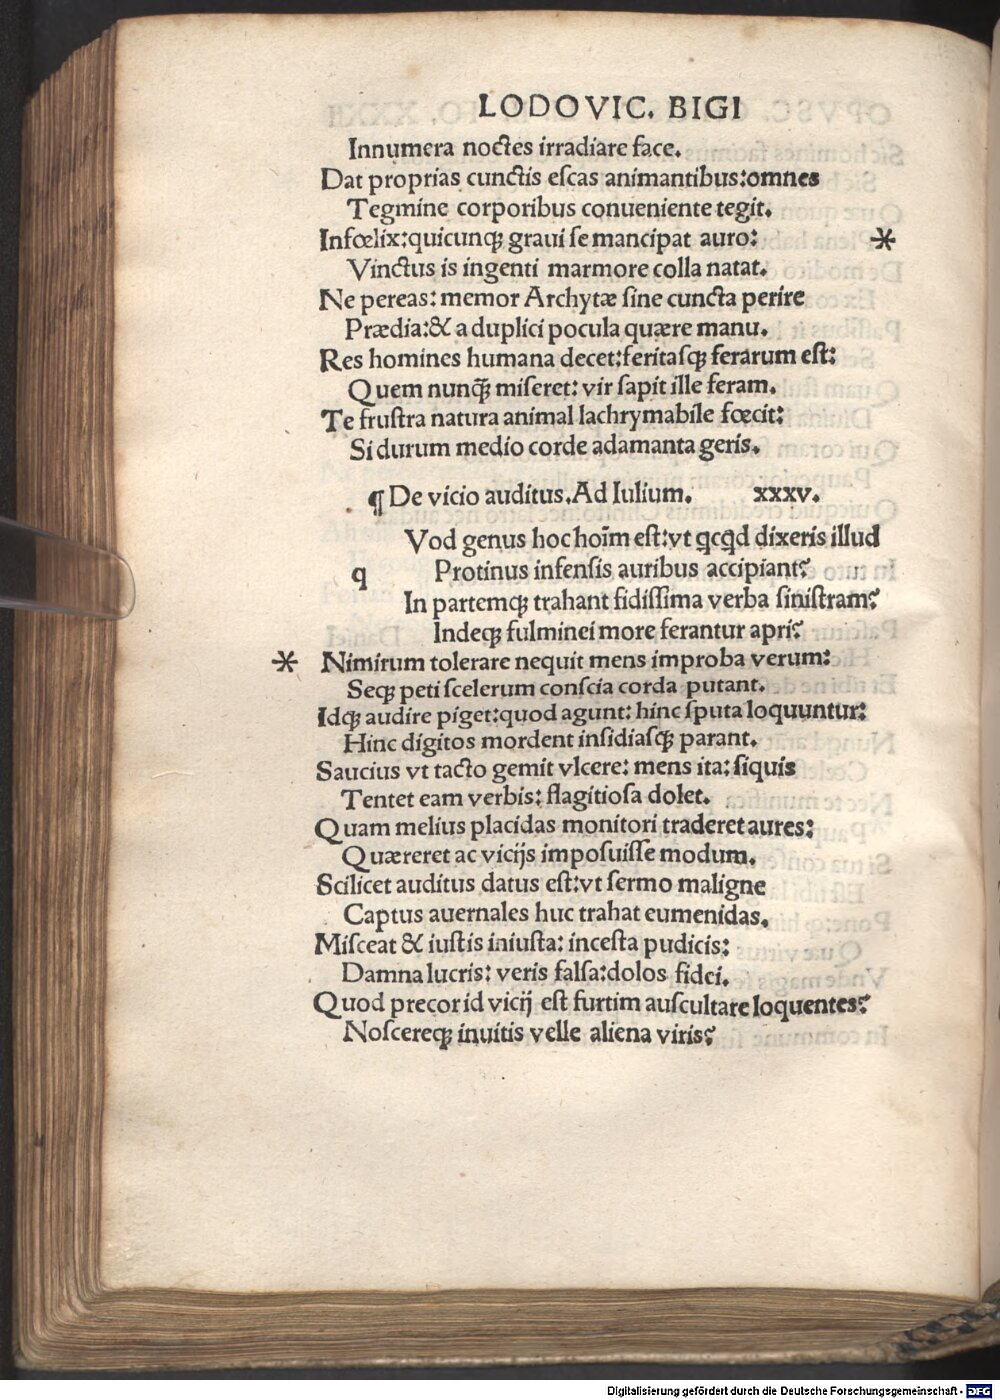 LODOVIC. BIGI
Innumera noctes irradiare face.
Dat proprias cunctis eſcas animantibus: omnes
Tegmine corporibus conueniente tegit.
Infœlix: quicunqꝫ graui ſe mancipat auro: *
Vinctus is ingenti marmore colla natat.
Ne pereas: memor Archytæ ſine cuncta perire
Prædia: & a duplici pocula quære manu.
Res homines humana decet: feritaſqꝫ ferarum eſt:
Quem nunq̃ miſeret: vir ſapit ille feram.
Te fruſtra natura animal lachrymabile fœcit:
Si durum medio corde adamanta geris.
¶ De vicio auditus. Ad Iulium. xxxv.
Vod genus hoc hoīm eſt: vt qcq̇d dixeris illud
q Protinus infenſis auribus accipiant?
In partemqꝫ trahant fidiſſima verba ſiniſtram?
Indeqꝫ fulminei more ferantur apri?
* Nimirum tolerare nequit mens improba verum:
Seqꝫ peti ſcelerum conſcia corda putant.
Idqꝫ audire piget: quod agunt: hinc ſputa loquuntur:
Hinc digitos mordent inſidiaſqꝫ parant.
Saucius vt tacto gemit vlcere: mens ita: ſiquis
Tentet eam verbis: flagitioſa dolet.
Quam melius placidas monitori traderet aures:
Quæreret ac vicijs impoſuiſſe modum.
Scilicet auditus datus eſt: vt ſermo maligne
Captus auernales huc trahat eumenidas.
Miſceat & iuſtis iniuſta: inceſta pudicis:
Damna lucris: veris falſa: dolos fidei.
Quod precor id vicij eſt furtim auſcultare loquentes?
Noſcereqꝫ inuitis velle aliena viris?
Digitalisierung gefördert durch die Deutsche Forschungsgemeinschaft - DFG